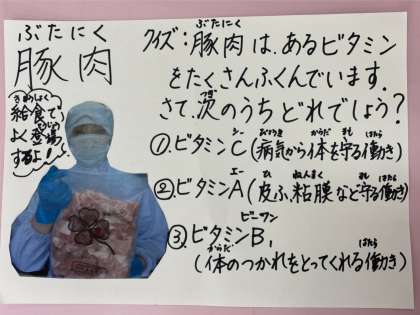 ぶたにく
豚肉
きゅうしょく
給食で、
よく登場
するよ!
ぶたにく
クイズ:豚肉は、あるビタミン
をたくさんふくんでいます。
つぎ
さて、次のうちどれでしょう?
シー びょうき からだ まも はたら
①ビタミンC(病気から体を守る働き)
エー ひ ねんまく まも はたら
②ビタミンA(皮ふ、粘膜など守る働き)
ビーワン
③ビタミンB₁
からだ はたら
(体のつかれをとってくれる働き)